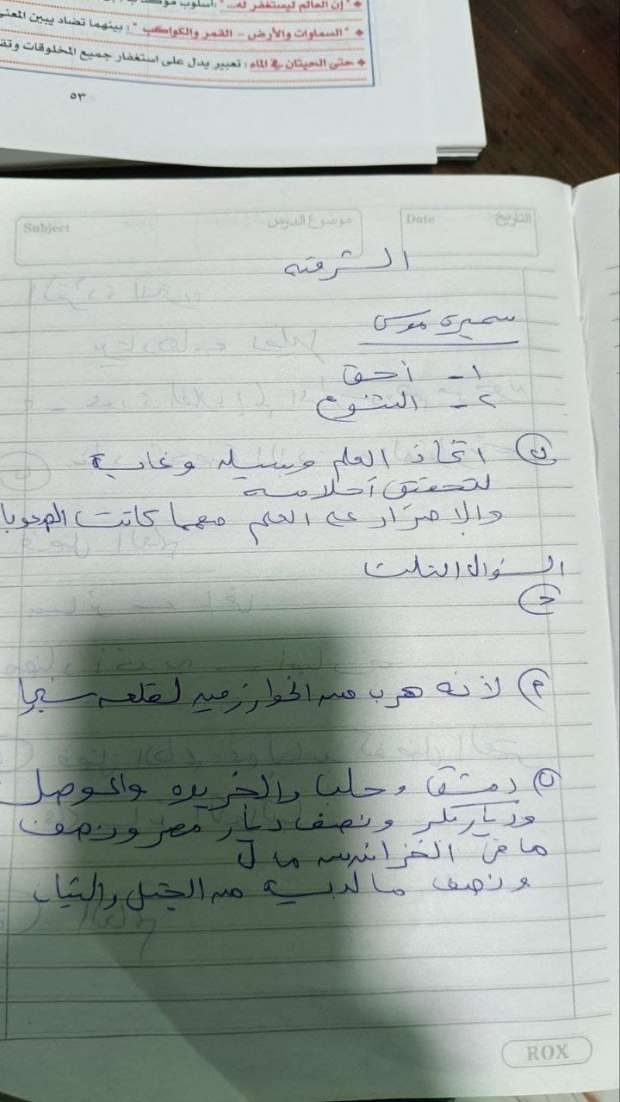 ✦ "إن العالم ليستغفر له...": أسلوب
✦ "السماوات والأرض - القمر والكواكب": بينهما تضاد يبين المعنى
✦ حتى الحيتان في الماء: تعبير يدل على استغفار جميع المخلوقات
٥٣
Subject
موضوع الدرس
Date
التاريخ
الشرقيه
سميرة موسى
١- أحق
٢- التنوع
اتخاذ العلم وسيله وغاية
لتحقيق أحلامه
والاصرار على العلم مهما كانت الصعوبا
السؤال التلت
لأنه هرب من الخوارزميه لقلعه
دمشق وحلب والجزيره والموصل
وديار بكر ونصف ديار مصر ونصف
ما في الخزائن من مال
ونصف ما لديه من الخيل والثياب
ROX